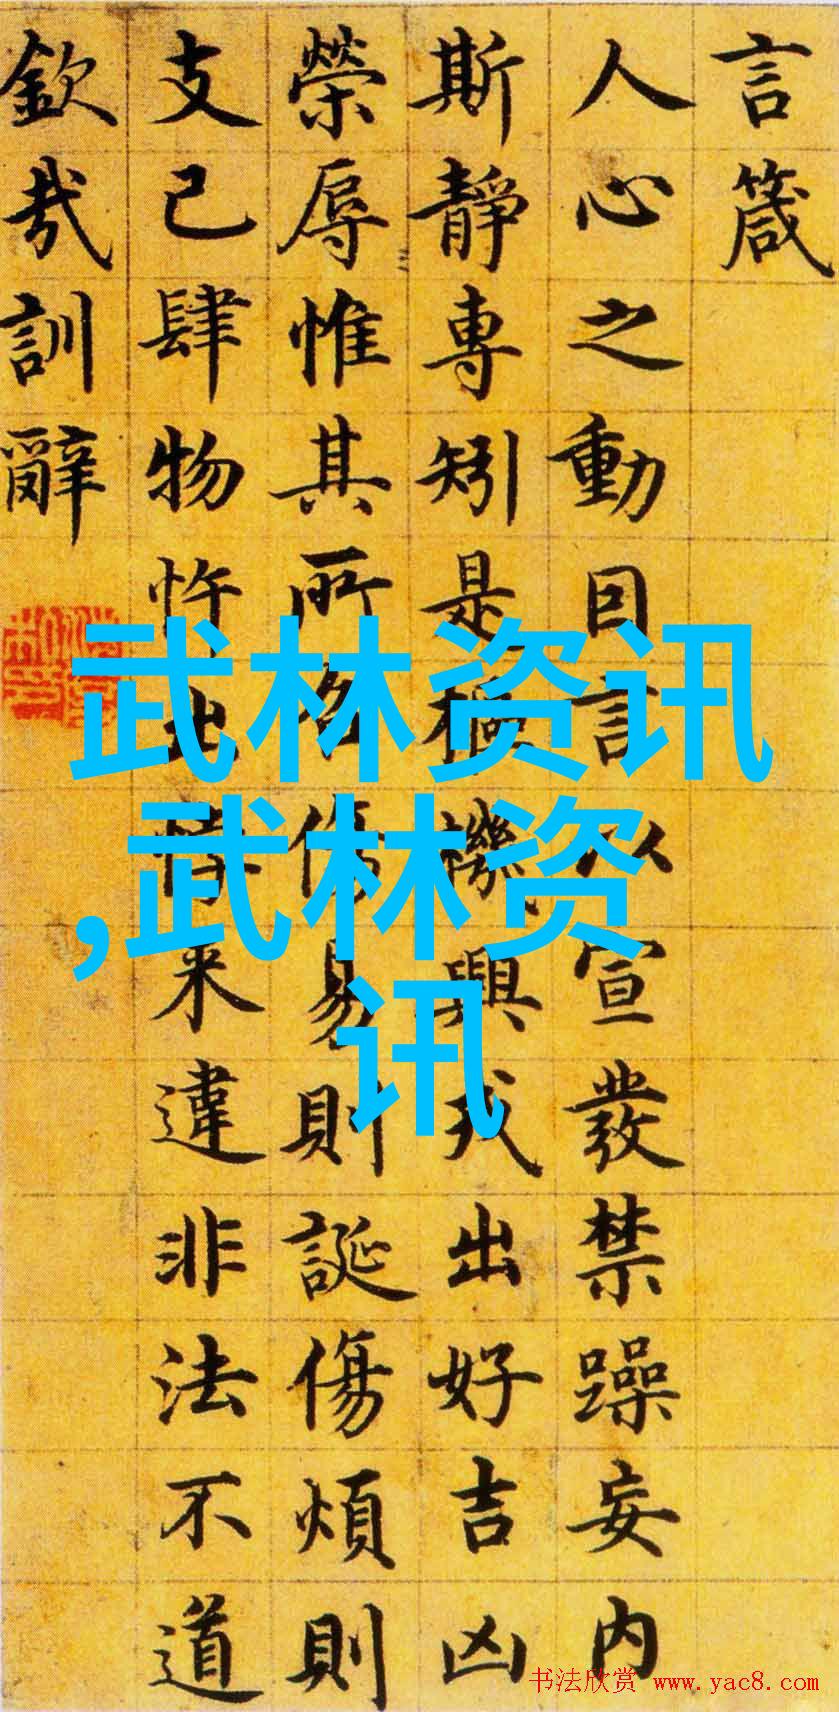 言箴
人心之動因言以宣發禁躁妄内
斯靜專矧是樞機興戎出好吉凶
榮辱惟其所召傷易則誕傷煩則
支己肆物忤出悖来違非法不道
欽哉訓辭
武林资讯
,武林资
讯
书法欣赏 www.yac8.com